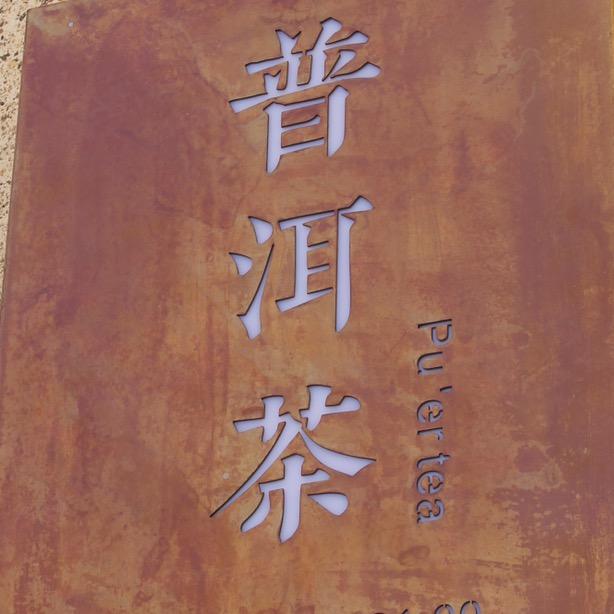 普洱茶
Pu'er tea